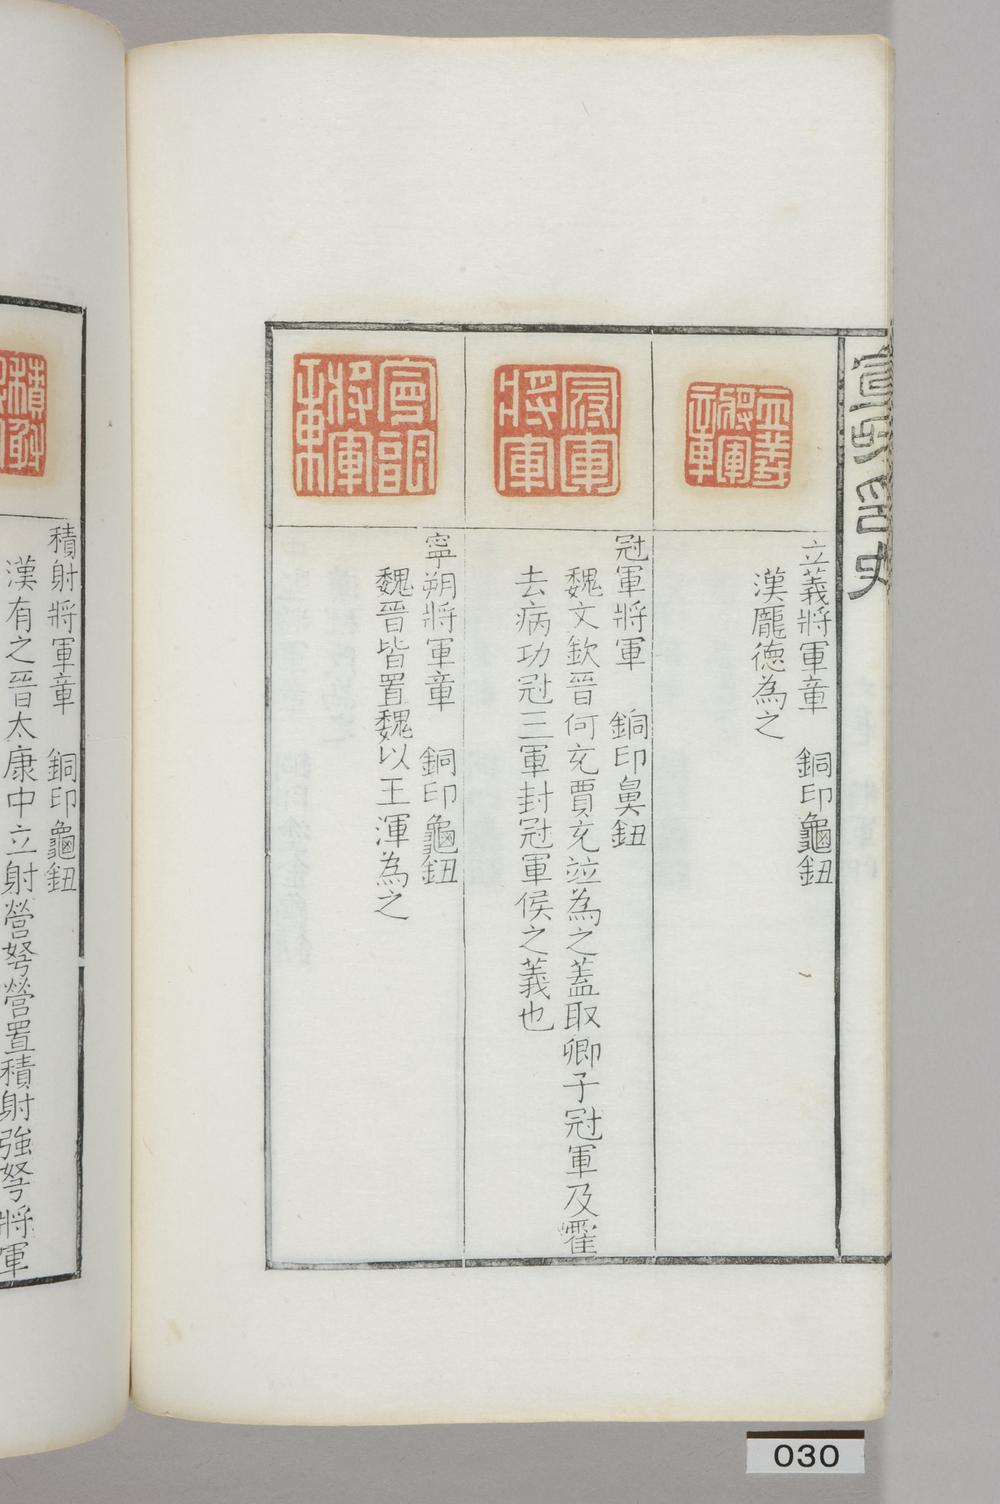 宣和印史
立義將軍章
立義將軍章　銅印龜鈕
漢龐德為之
冠軍將軍
冠軍將軍　銅印鼻鈕
魏文欽晉何充賈充竝為之蓋取卿子冠軍及霍
去病功冠三軍封冠軍侯之義也
寧朔將軍章
寧朔將軍章　銅印龜鈕
魏晉皆置魏以王渾為之
積射
積射將軍章　銅印龜鈕
漢有之晉太康中立射營弩營置積射強弩將軍
030